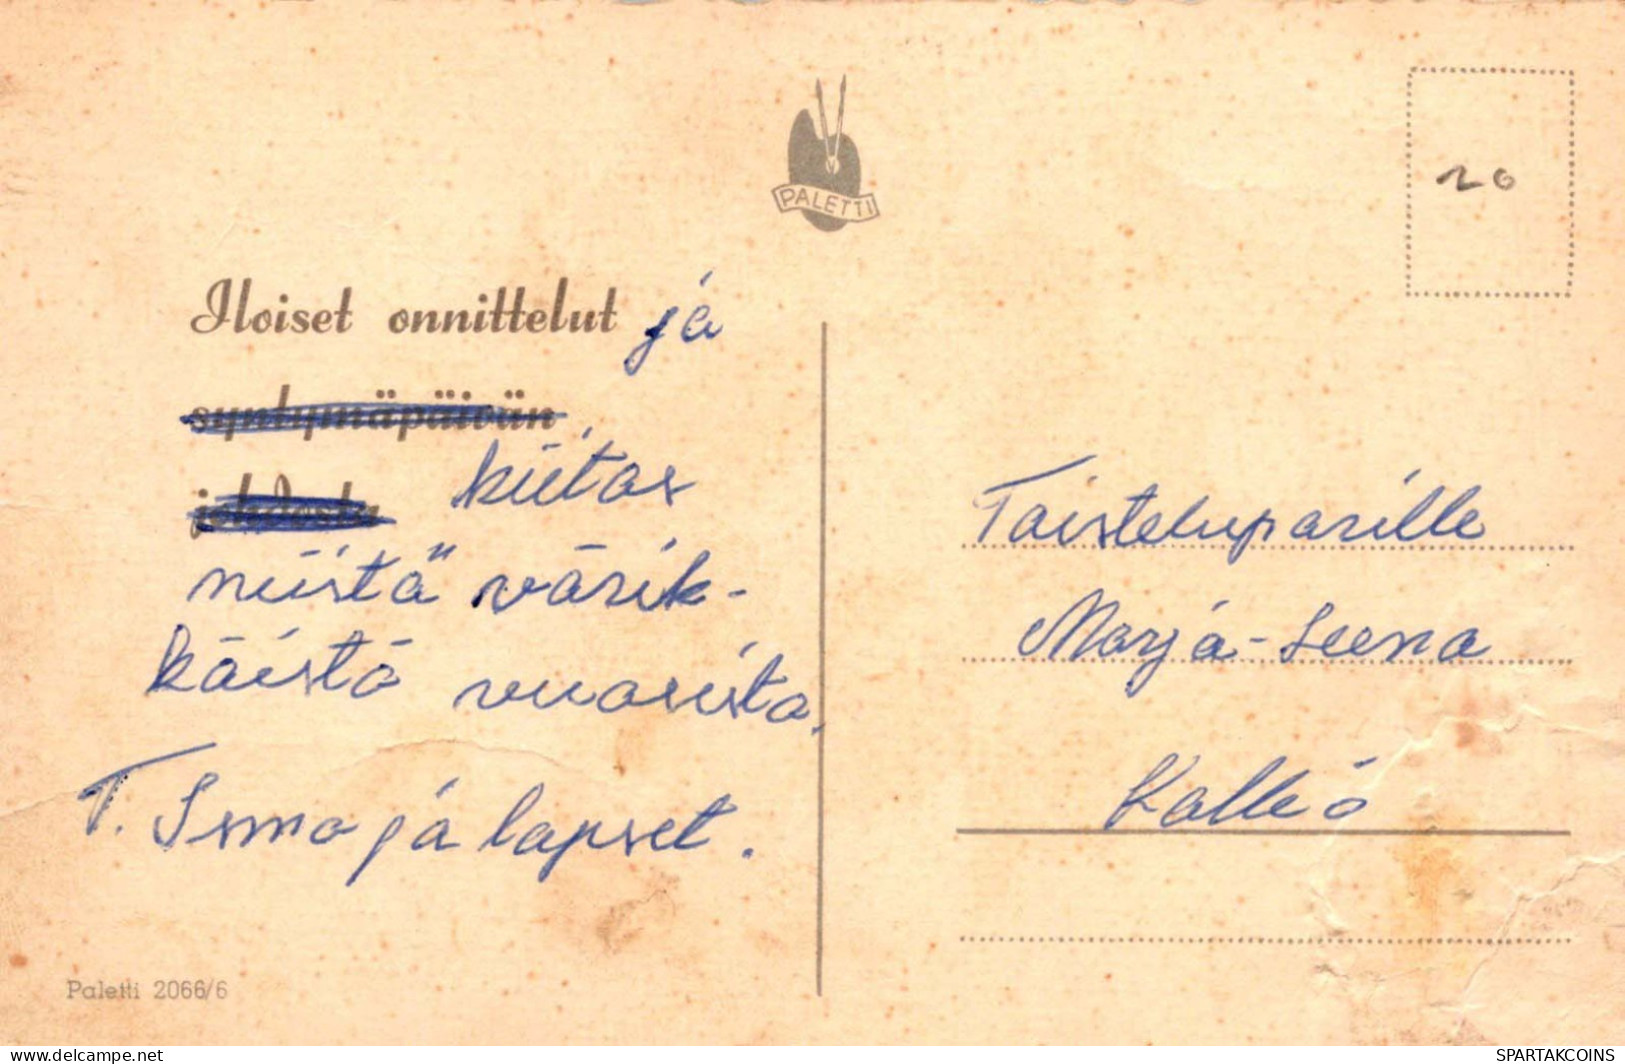 PALETTI
20
Iloiset onnittelut ja
syntymäpäivän
johdosta kiitos
niistä värik-
käistä vuosista.
T. Ismo ja lapset.
Taisteluparille
Marja-Leena
Kallio
Paletti 2066/6
https://www.delcampe.net
SPARTAKCOINS